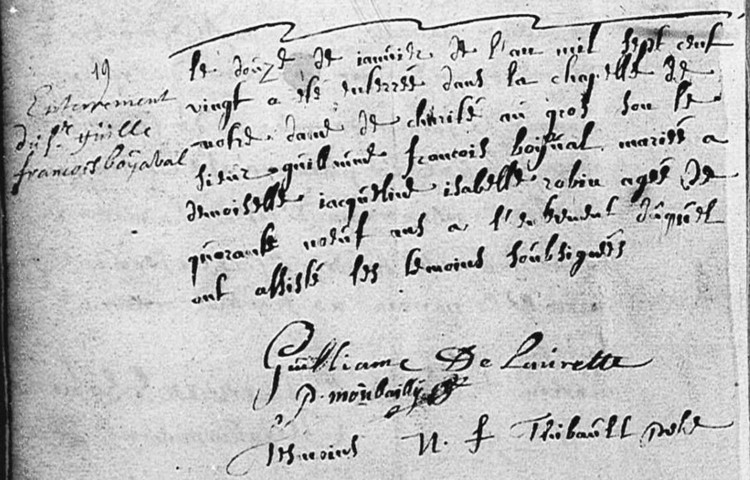 19
Enterrement
du sr guille
francois boyaval
le douze de ianvier de l'an mil sept cent
vingt a été enterrée dans la chapelle de
notre dame de charité au gros son le
sieur guilaume francois boyaval mariée a
demoiselle iacqueline isabelle robin agée de
quarante noeuf ans a l'enterement duquel
ont assisté les temoins soubsignées
Guilliame De Laurette
p. monbailly
tesmoins N. f Thibault